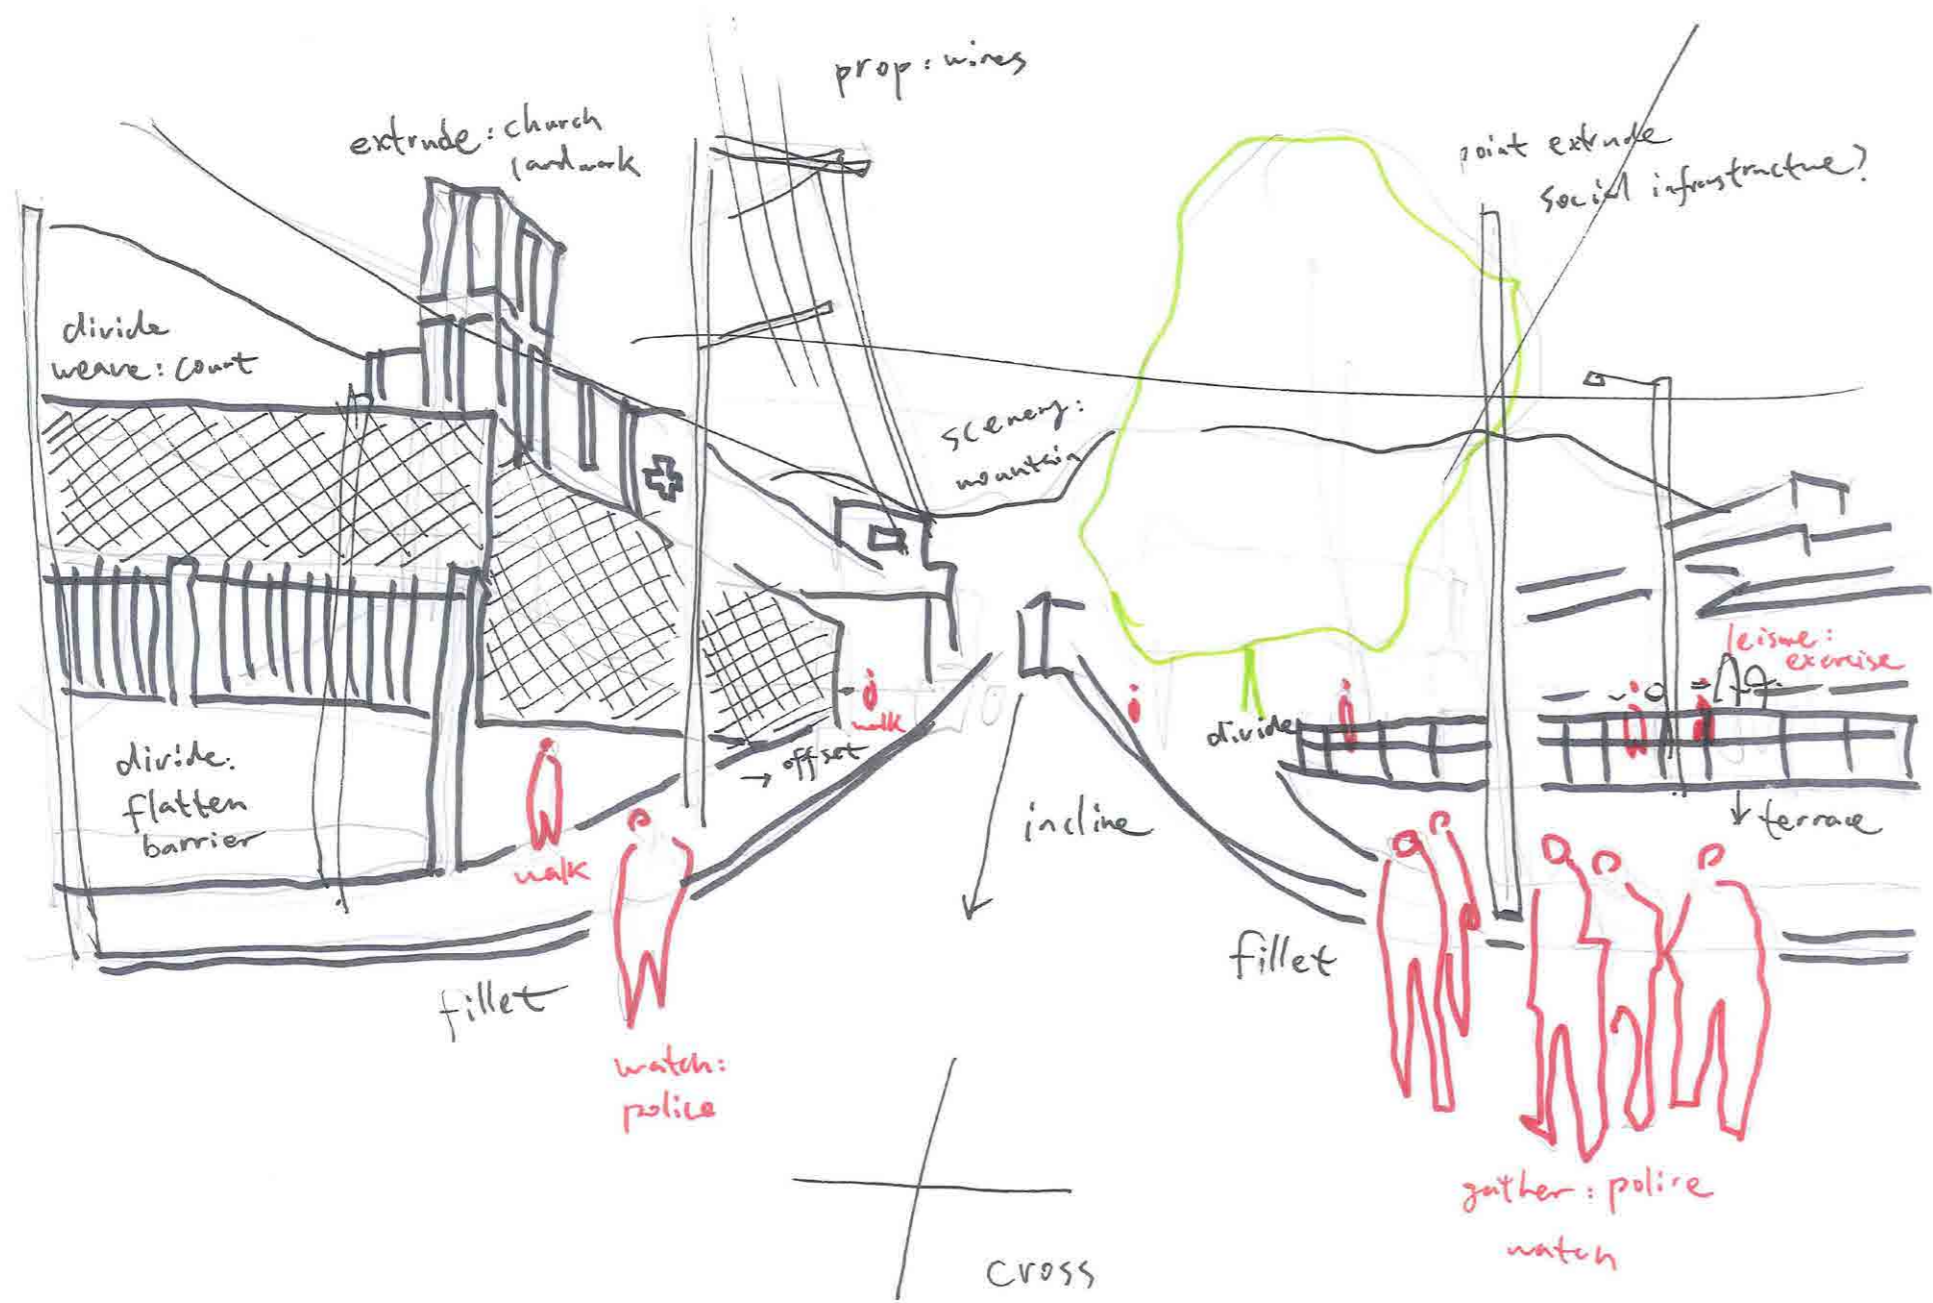 prop: wires
extrude: church
landmark
point extrude
social infrastructure?
divide
weave: court
scenery:
mountain
leisure:
exercise
walk
divide
offset
divide:
flatten
barrier
incline
terrace
walk
fillet
fillet
watch:
police
gather: police
watch
cross